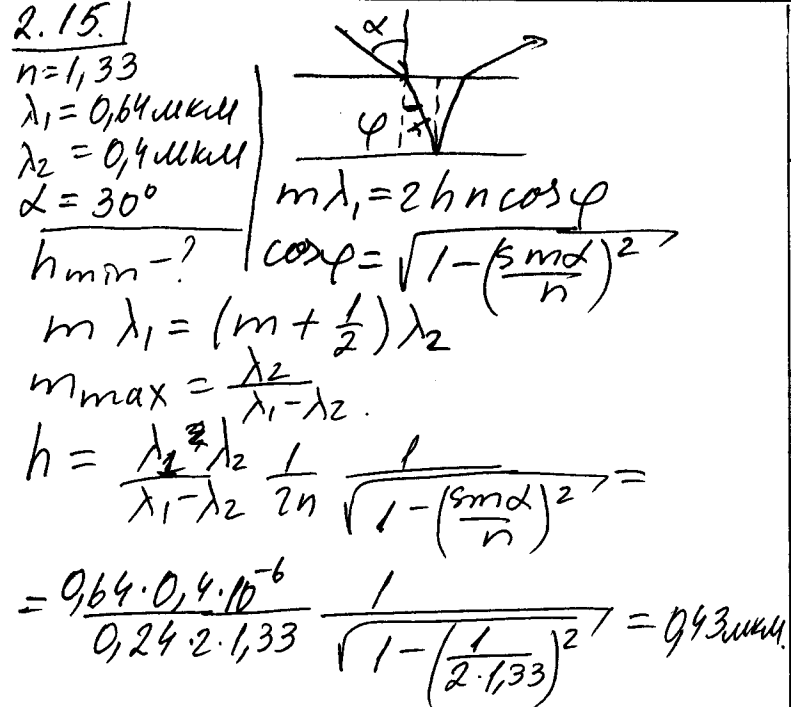 2.15.
n=1,33
λ₁=0,64мкм
λ₂=0,4мкм
α=30°
hmin-?
α
φ
mλ₁=2hncosφ
cosφ=√(1-(sinα/n)²)
mλ₁=(m+1/2)λ₂
mmax=λ₂/(λ₁-λ₂).
h=λ₁λ₂/(λ₁-λ₂) 1/2n 1/√(1-(sinα/n)²)=
=0,64·0,4·10⁻⁶/(0,24·2·1,33) 1/√(1-(1/(2·1,33))²)=0,43мкм.